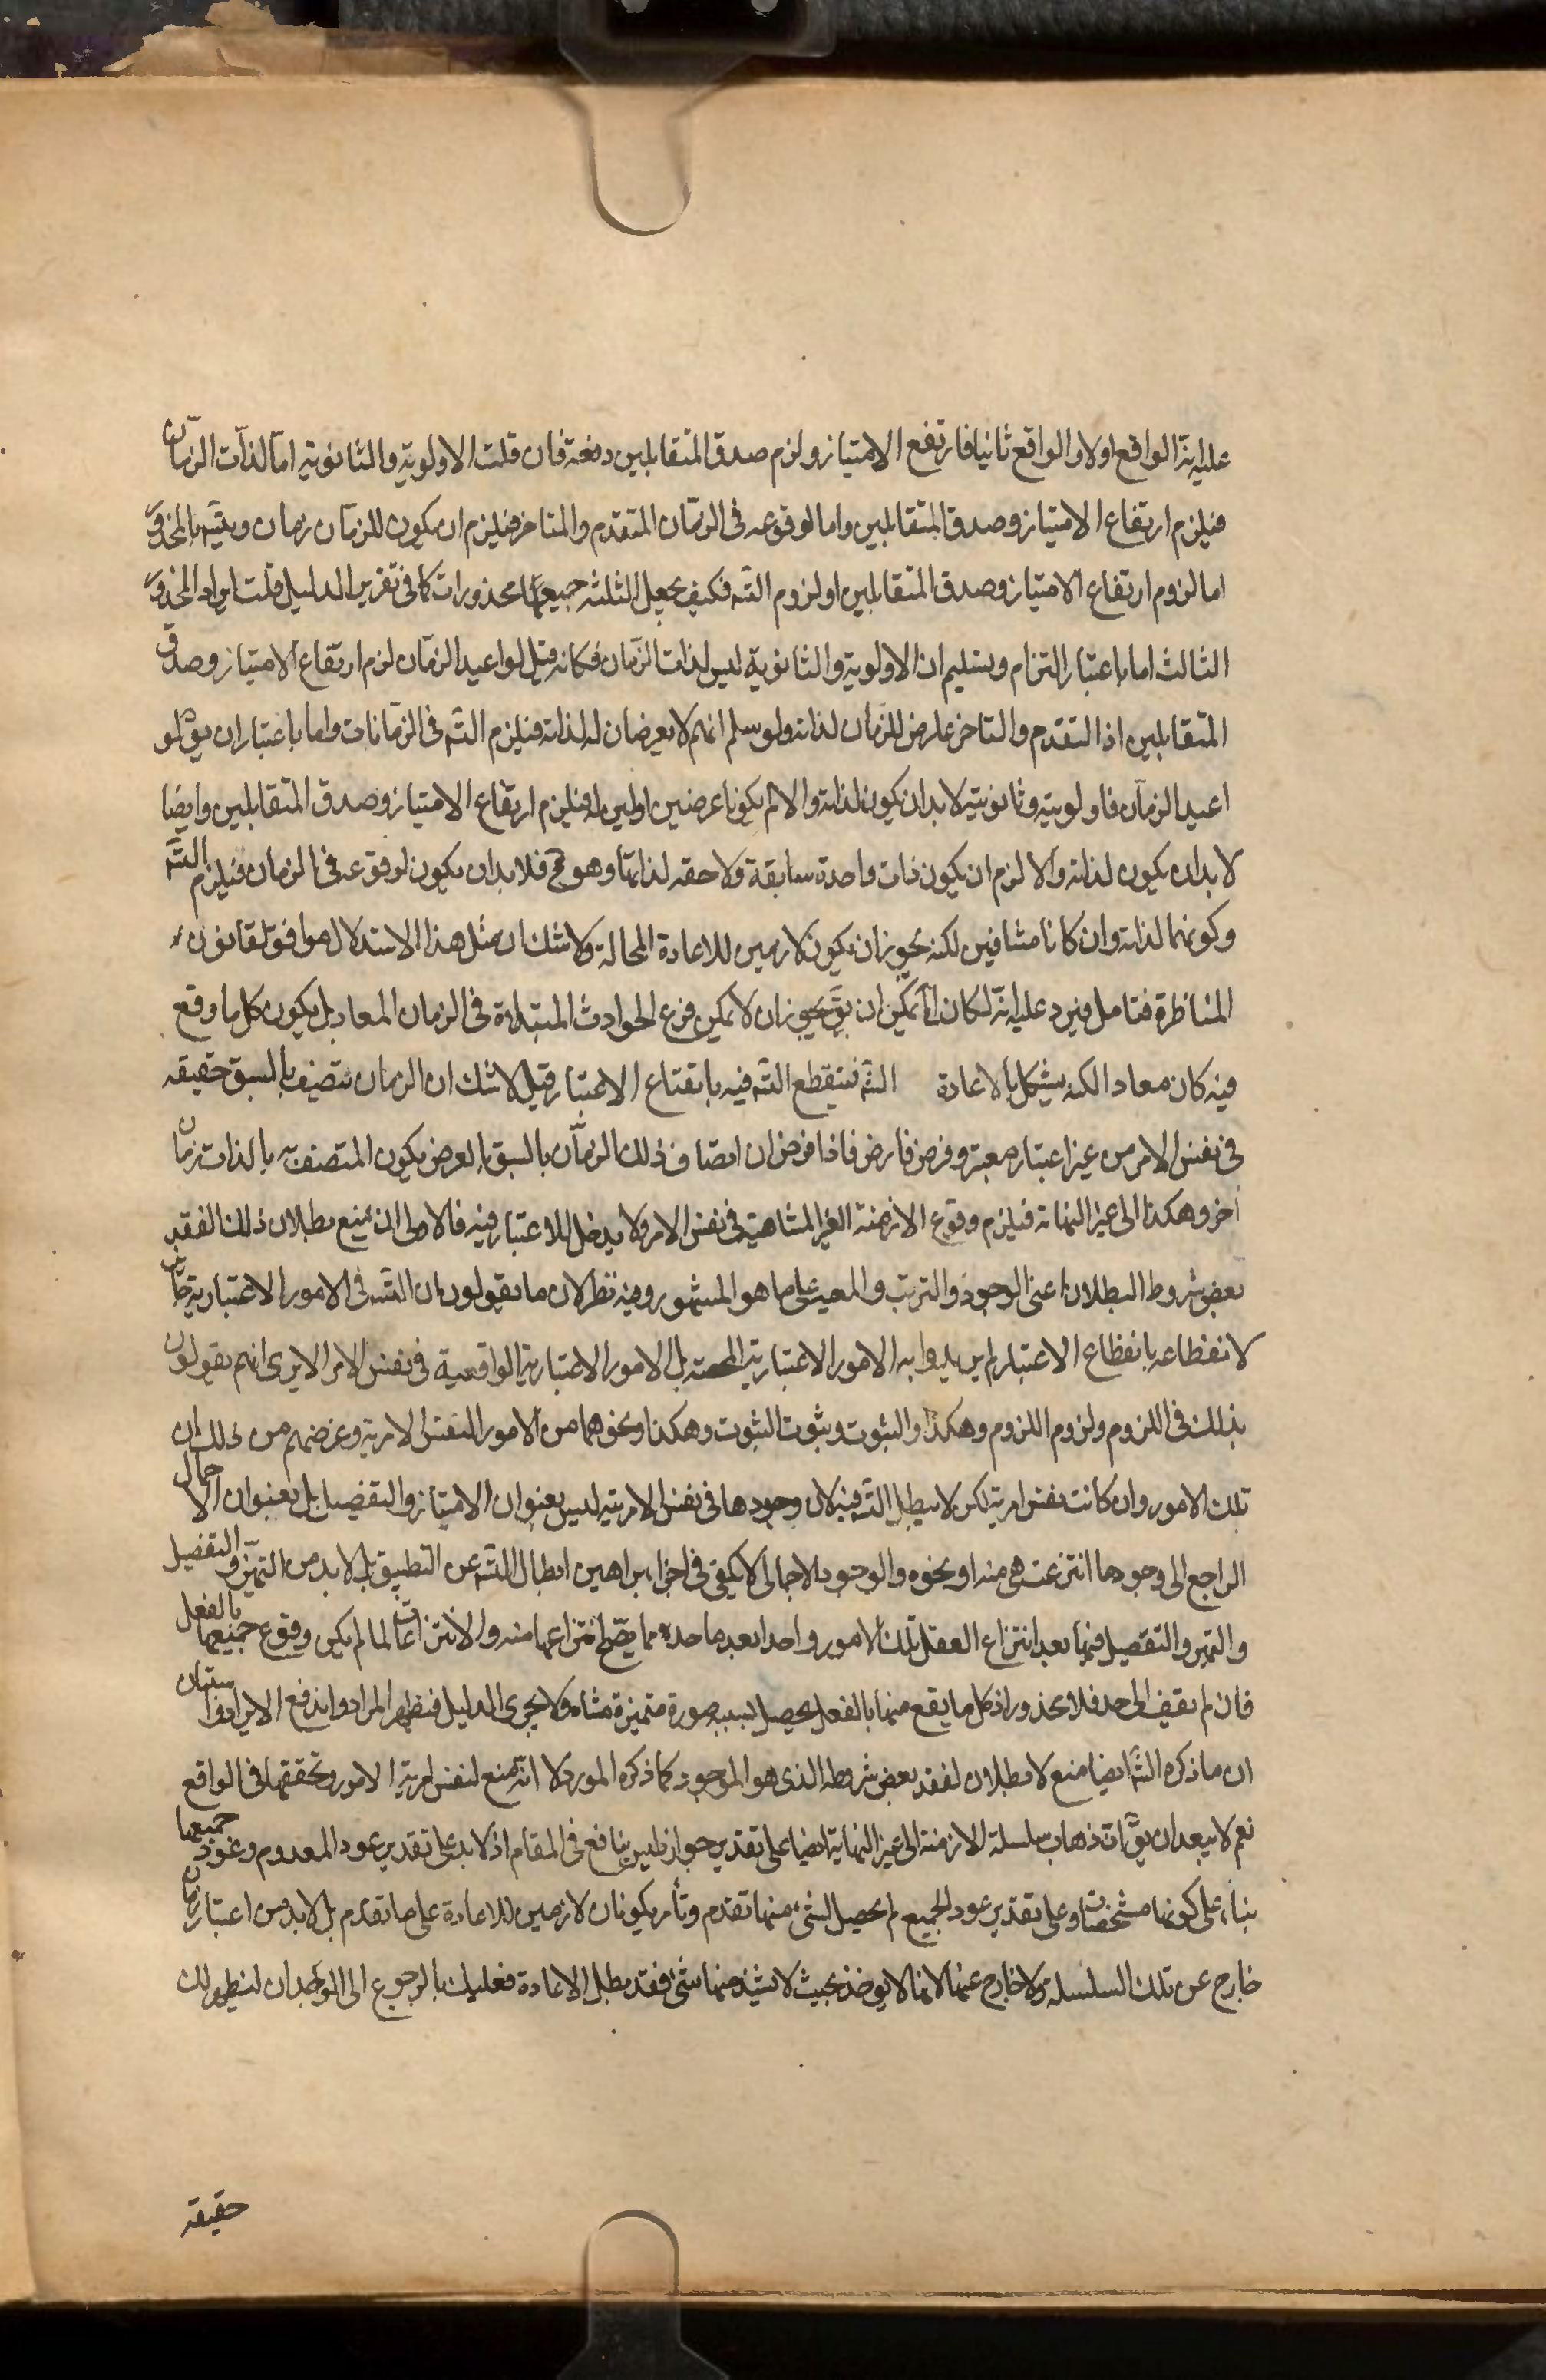 عليه انه الواقع اولا والواقع ثانيا فارتفع الامتياز ولزم صدق المتقابلين دفعة فان قلت الاولوية والثانوية اما لذات الزمان
فيلزم ارتفاع الامتياز وصدق المتقابلين واما لوقوعه فى الزمان المتقدم والمتاخر فيلزم ان يكون للزمان زمان
اما لزوم ارتفاع الامتياز وصدق المتقابلين او لزوم التسه فكيف يجعل الثلثه جميعها محذورات كما فى تقرير الدليل قلت ايراد المحذور
الثالث اما باعتبار التزام وتسليم ان الاولوية والثانوية ليس لذات الزمان فكانه قيل لو اعيد الزمان لزم ارتفاع الامتياز وصدق
المتقابلين اذ التقدم والتاخر عارض للزمان لذاته ولو سلم انهم لا يعرضان له لذاته فيلزم التسه فى الزمانات واما باعتبار ان يق لو
اعيد الزمان فاولويته وثانويته لا بد ان يكون لذاته والا لم يكونا عرضين اولين له فيلزم ارتفاع الامتياز وصدق المتقابلين وايضا
لا بد ان يكون لذاته والا لزم ان يكون ذات واحدة سابقة ولاحقه لذاتها وهو مح فلا بد ان يكون لوقوعه فى الزمان فيلزم التسه
وكونهما لذاته وان كانا متنافيين لكنه يجوز ان يكون لازمين للاعادة المحالة ولا شك ان مثل هذا الاستدلال موافق لقانون
المناظرة فتامل فيرد عليه انه لكان يمكن ان يق يجوز ان لا يمكن فرع الحوادث المبتداة فى الزمان المعاد بل يكون كل ما وقع
فيه كان معادا لكنه يشكل بالاعادة التسه فينقطع التسه فيه بانقطاع الاعتبار قيل لا شك ان الزمان يتصف بالسبق حقيقه
فى نفس الامر من غير اعتبار معتبر وفرض فارض فاذا فرض ان اتصاف ذلك الزمان بالسبق بالعرض يكون المتصف به بالذات زمان
اخر وهكذا الى غير النهاية فيلزم وقوع الازمنة الغير المتناهية فى نفس الامر ولا يدخل للاعتبار فيه فالاولى ان يمنع بطلان ذلك لفقد
بعض شروط البطلان اعنى الوجود والترتب والمعية على ما هو المشهور وفيه نظر لان ما يقولون ان التسه فى الامور الاعتبارية جايز
لانقطاعه بانقطاع الاعتبار لم يريدوا به الامور الاعتبارية المحضه بل الامور الاعتبارية الواقعية فى نفس الامر الا يرى انهم يقولون
بذلك فى اللزوم ولزوم اللزوم وهكذا والثبوت وثبوت الثبوت وهكذا ونحوهما من الامور النفس الامرية وغرضهم من ذلك ان
تلك الامور وان كانت نفس امرية لكن لا يبطل التسه فيه لان وجودها فى نفس الامر ليس بعنوان الامتياز والتفصيل بل بعنوان الاجمال
الراجع الى وجود ما انتزعت هى منه او نحوه والوجود الاجمالى لا يكفى فى اجراء براهين ابطال التسه عن التطبيق بل لا بد من التميز والتفصيل
والتميز والتفصيل فيها بعد انتزاع العقل تلك الامور واحدا بعد واحد مما يصح انتزاعها منه والانتزاعات لما لم يكن وقوع جميعها بالفعل
فان لم يقف الى حد فلا محذور اذ كل ما يقع منها بالفعل يحصل بسببه صورة متميزة متناه ولا يجرى الدليل فيظهر المراد واندفع الايراد واستبان
ان ما ذكره التسه ايضا منع لابطلان لفقد بعض شروطه الذى هو الموجود كما ذكره المورد لا انه منع لنفس امرية الامور وتحققها فى الواقع
نعم لا يبعد ان يق ان ذهاب سلسلة الازمنة الى غير النهاية ايضا على تقدير جوازه ليس بنافع فى المقام اذ لا بد على تقدير عود المعدوم وعود جميعها
بناء على كونها مشخصات وعلى تقدير عود الجميع لم يحصل لشئ منها تقدم وتأخر يكونان لازمين للاعادة على ما تقدم بل لا بد من اعتبار زمان
خارج عن تلك السلسله ولا خارج عنها لانها لا يوخذ بحيث لا يشذ منها شئ فقد بطل الاعادة فعليك بالرجوع الى الوجدان ليظهر لك
حقيقه